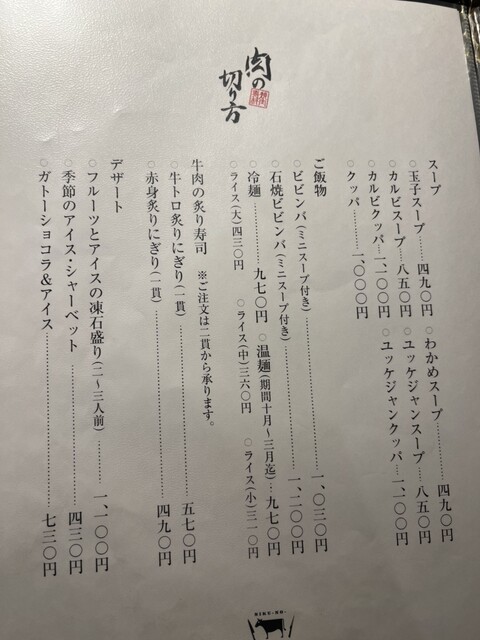 肉の
切り方
スープ
○玉子スープ……四九〇円 ○わかめスープ……四九〇円
○カルビスープ……八五〇円 ○ユッケジャンスープ……八五〇円
○カルビクッパ……一、一〇〇円 ○ユッケジャンクッパ……一、一〇〇円
○クッパ……一、〇〇〇円
ご飯物
○ビビンバ(ミニスープ付き)……一、〇三〇円
○石焼ビビンバ(ミニスープ付き)……一、二〇〇円
○冷麺……九七〇円 ○温麺(期間十月〜三月迄)……九七〇円
○ライス(大)四三〇円 ○ライス(中)三六〇円 ○ライス(小)三一〇円
牛肉の炙り寿司 ※ご注文は二貫から承ります。
○牛トロ炙りにぎり(一貫)……五七〇円
○赤身炙りにぎり(一貫)……四九〇円
デザート
○フルーツとアイスの凍石盛り(二〜三人前)……一、一〇〇円
○季節のアイス・シャーベット……四三〇円
○ガトーショコラ&アイス……七三〇円